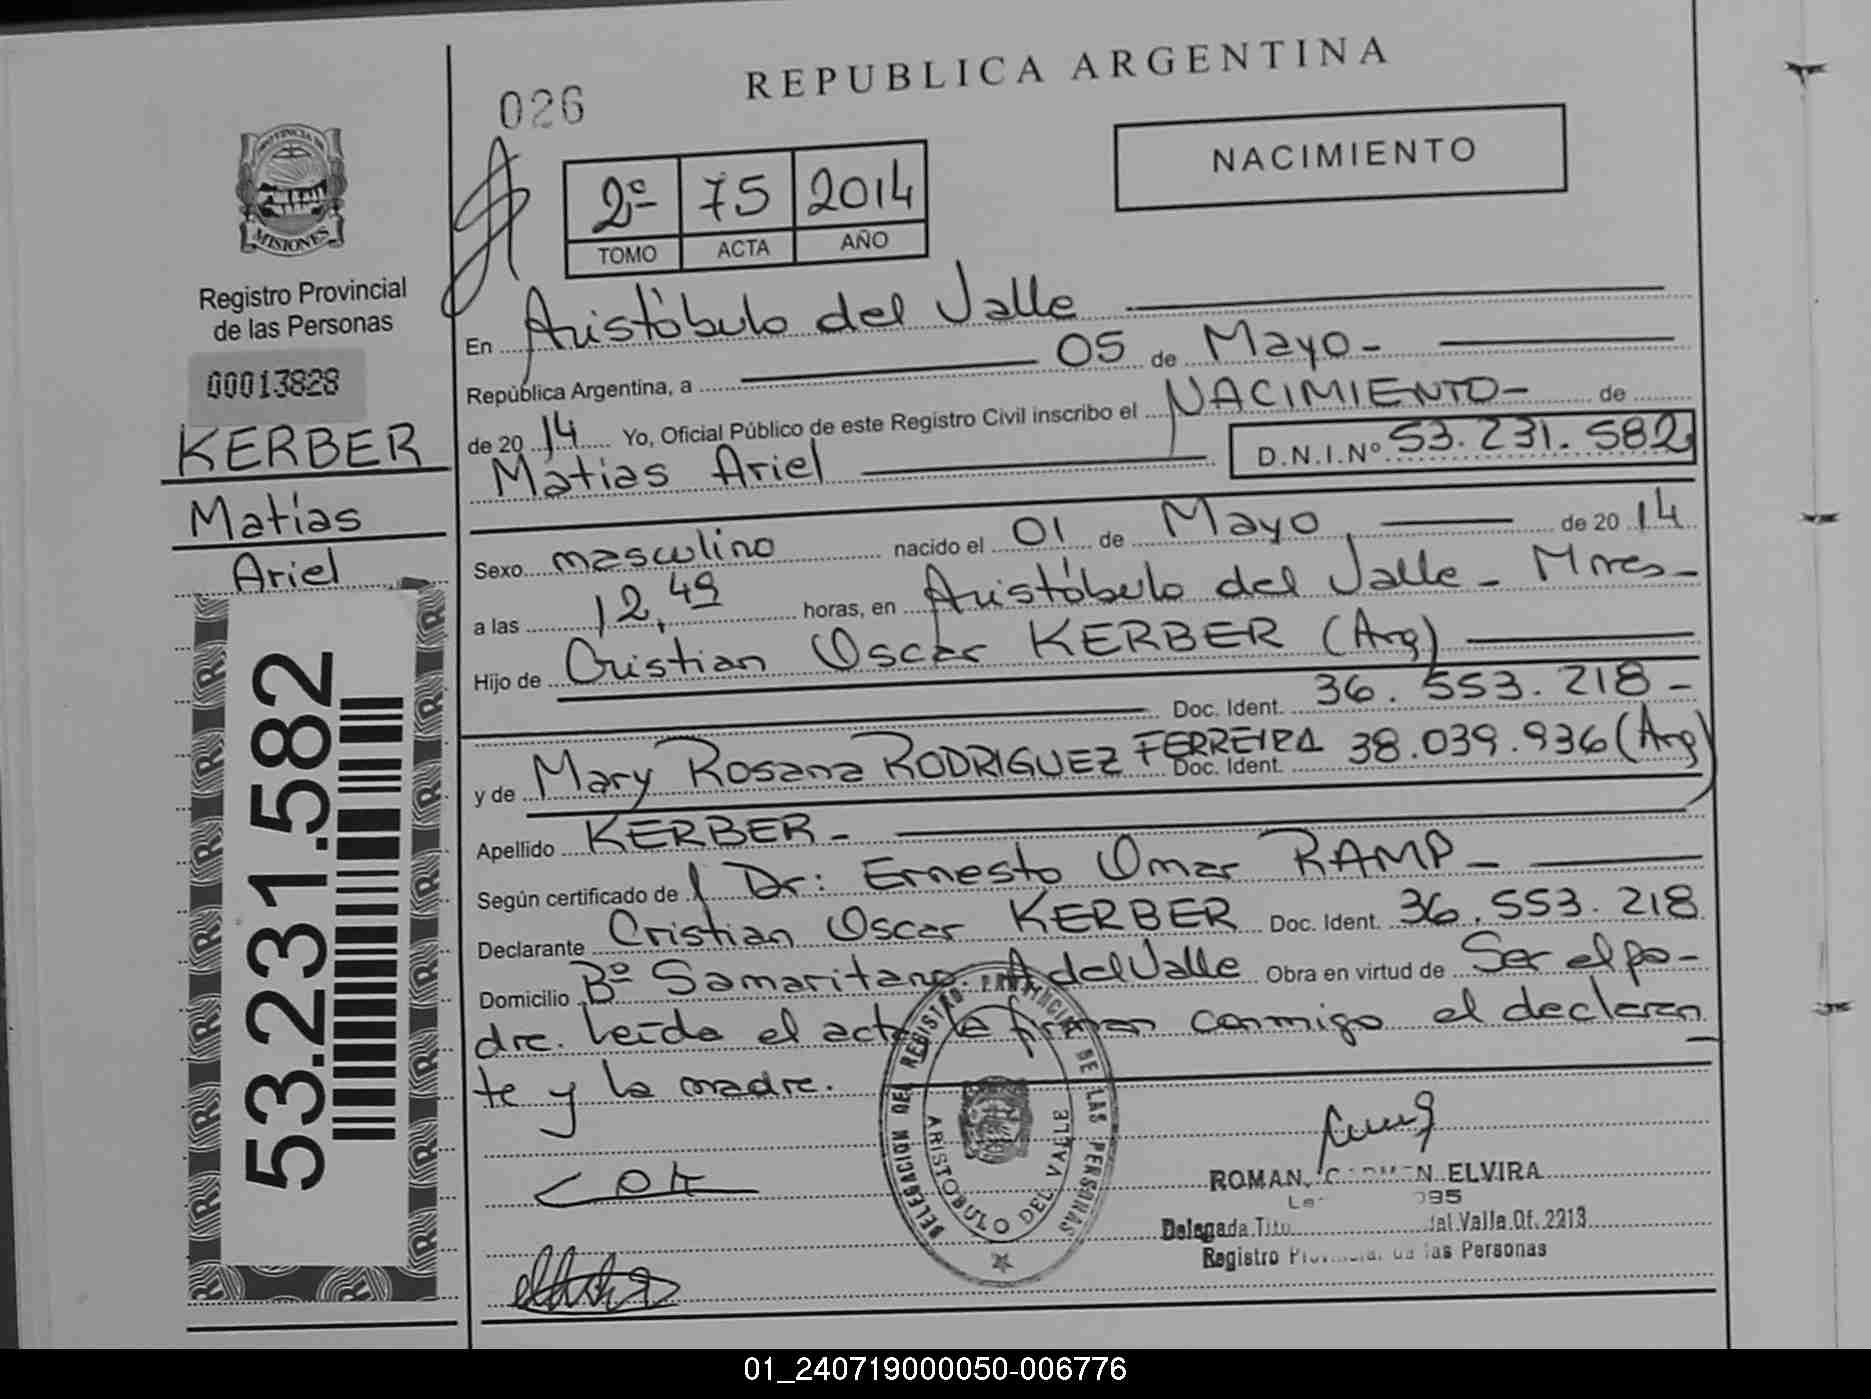 REPUBLICA ARGENTINA
026
NACIMIENTO
2º 75 2014
TOMO ACTA AÑO
PROVINCIA DE
MISIONES
Registro Provincial
de las Personas
00013828
KERBER
Matías
Ariel
53.231.582
En Aristóbulo del Valle
República Argentina, a 05 de Mayo -
de 20 14 Yo, Oficial Público de este Registro Civil inscribo el NACIMIENTO - de
Matias Ariel D.N.I.Nº 53.231.582
Sexo masculino nacido el 01 de Mayo de 20 14
a las 12,49 horas, en Aristóbulo del Valle - Mnes -
Hijo de Cristian Oscar KERBER (Arg)
Doc. Ident. 36.553.218 -
y de Mary Rosana RODRIGUEZ FERREIRA Doc. Ident. 38.039.936 (Arg)
Apellido KERBER -
Según certificado de Dr: Ernesto Omar RAMP -
Declarante Cristian Oscar KERBER Doc. Ident. 36.553.218
Domicilio Bº Samaritano. A del Valle Obra en virtud de Ser el pa-
dre. Leída el acta la firman conmigo el declaran
te y la madre.
DELEGACION DEL REGISTRO PROVINCIAL DE LAS PERSONAS
ARISTOBULO DEL VALLE
ROMAN, CARMEN ELVIRA
Delegada Of. 2213
Registro Provincial de las Personas
01_240719000050-006776